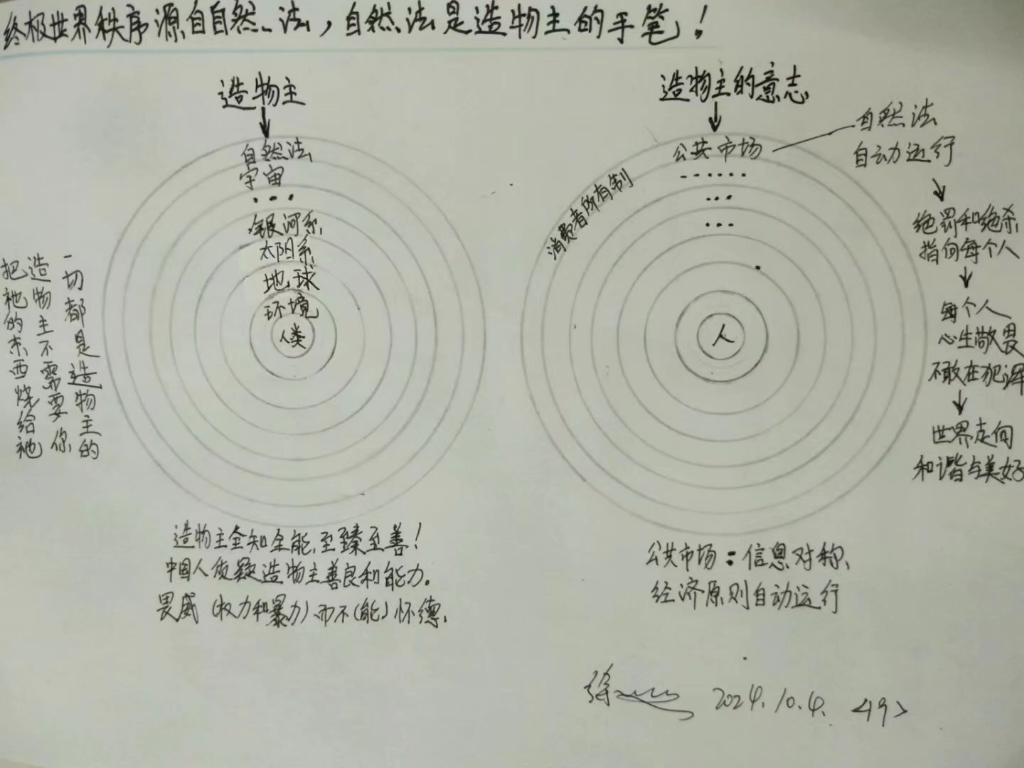 终极世界秩序源自自然法，自然法是造物主的手笔！
造物主
自然法
宇宙
...
银河系
太阳系
地球
环境
人类
一切都是造物主的
造物主不需要你
把祂的东西烧给祂
造物主全知全能，至臻至善！
中国人质疑造物主善良和能力。
畏威（权力和暴力）而不（能）怀德。
造物主的意志
公共市场
......
...
...
...
消费者所有制
人
自然法
自动运行
绝罚和绝杀
指向每个人
每个人
心生敬畏
不敢在犯罪
世界走向
和谐与美好
公共市场：信息对称、
经济原则自动运行
徐
2024.10.4. <19>